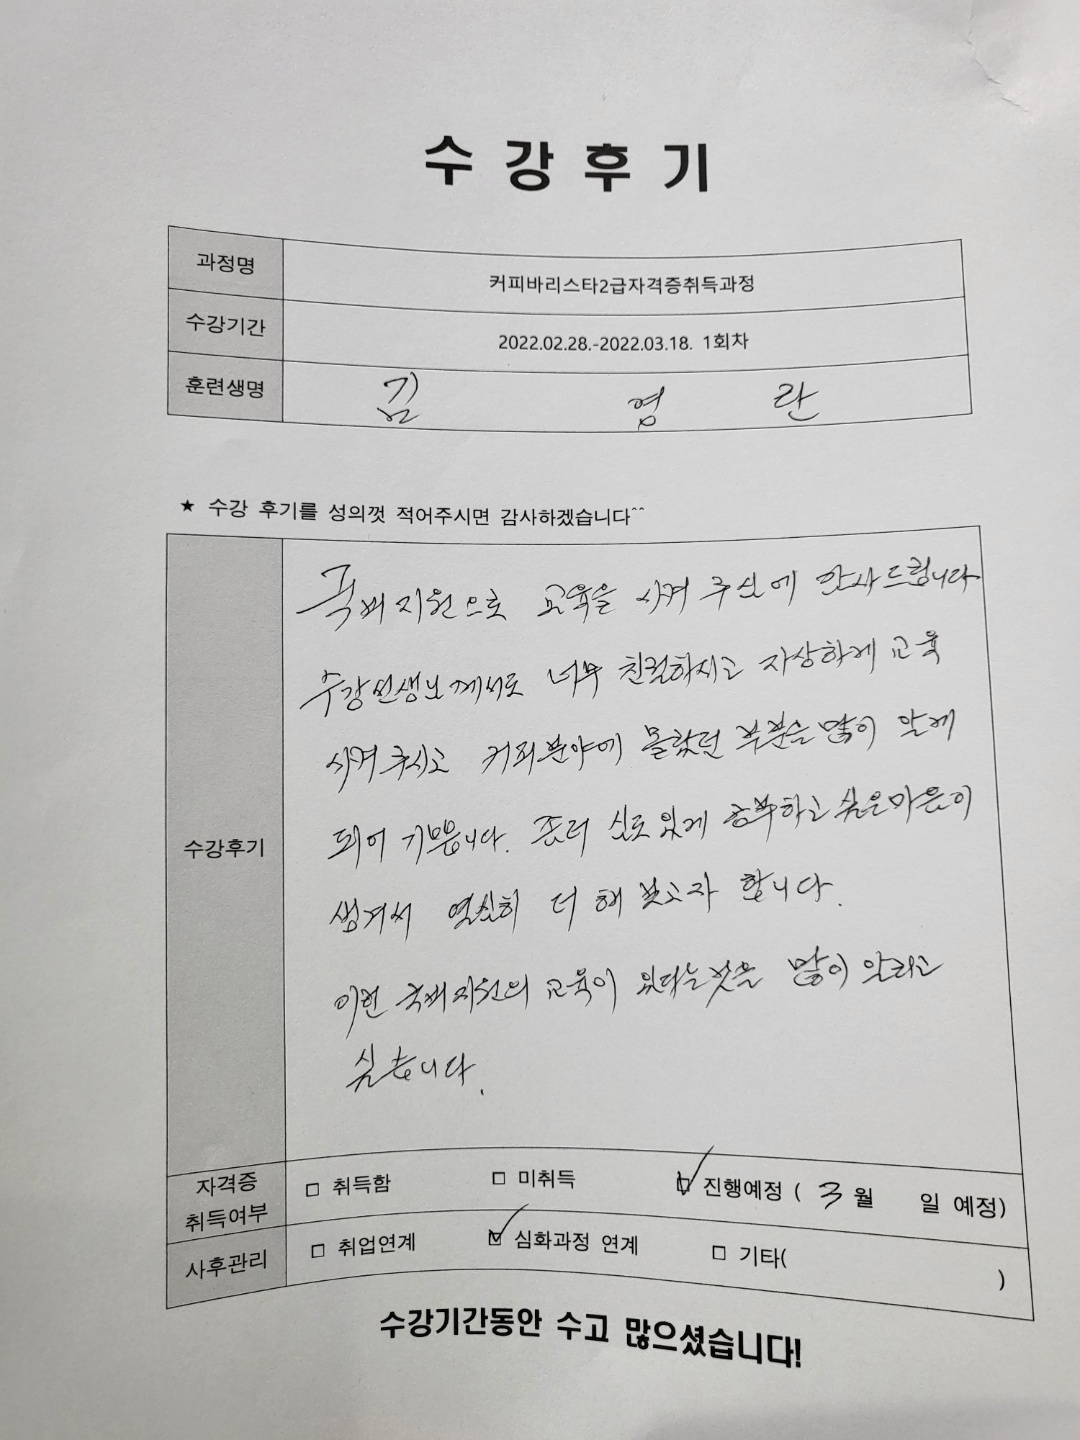 수강후기
과정명 커피바리스타2급자격증취득과정
수강기간 2022.02.28.-2022.03.18. 1회차
훈련생명 김 염 란
★ 수강 후기를 성의껏 적어주시면 감사하겠습니다^^
수강후기
국비지원으로 교육을 시켜 주신에 감사드립니다
수강선생님께서도 너무 친절하시고 자상하게 교육
시켜주시고 커피분야에 몰랐던 부분을 많이 알게
되어 기쁩니다. 존러 심도있게 공부하고 싶은마음이
생겨서 열심히 더 해 보고자 합니다.
이런 국비지원의 교육이 있다는것을 많이 알리고
싶습니다.
자격증 취득여부 □ 취득함 □ 미취득 ☑ 진행예정 ( 3월 일 예정)
사후관리 □ 취업연계 ☑ 심화과정 연계 □ 기타( )
수강기간동안 수고 많으셨습니다!